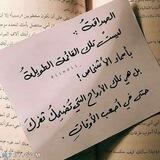 الصداقةُ
ليست تلك القائمة الطويلة
بأسماء الأشخاص !
بل هي تلك الأرواح التي تُضيئك بقربك
حتى في أصعب الأوقات .